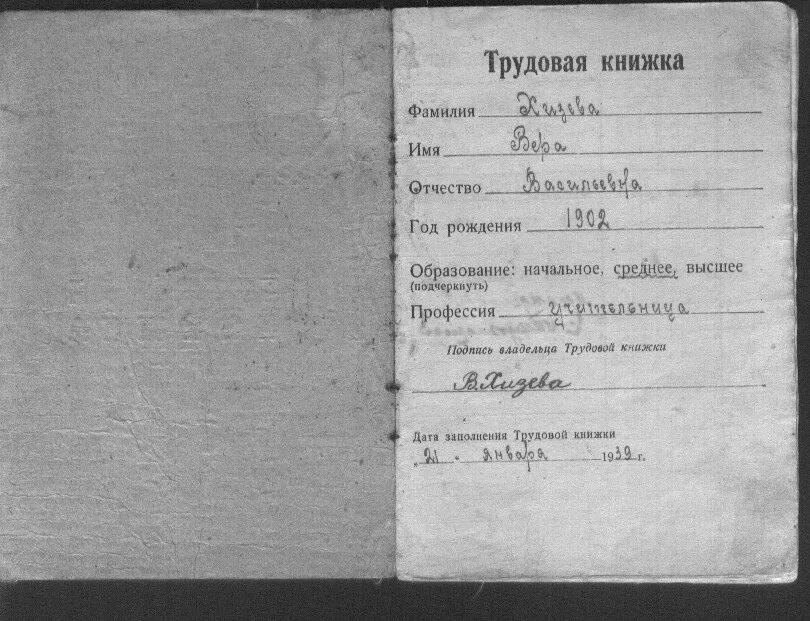 Трудовая книжка
Фамилия Хизева
Имя Вера
Отчество Васильевна
Год рождения 1902
Образование: начальное, среднее, высшее
(подчеркнуть)
Профессия учительница
Подпись владельца Трудовой книжки
В.Хизева
Дата заполнения Трудовой книжки
„21 " января 1939 г.